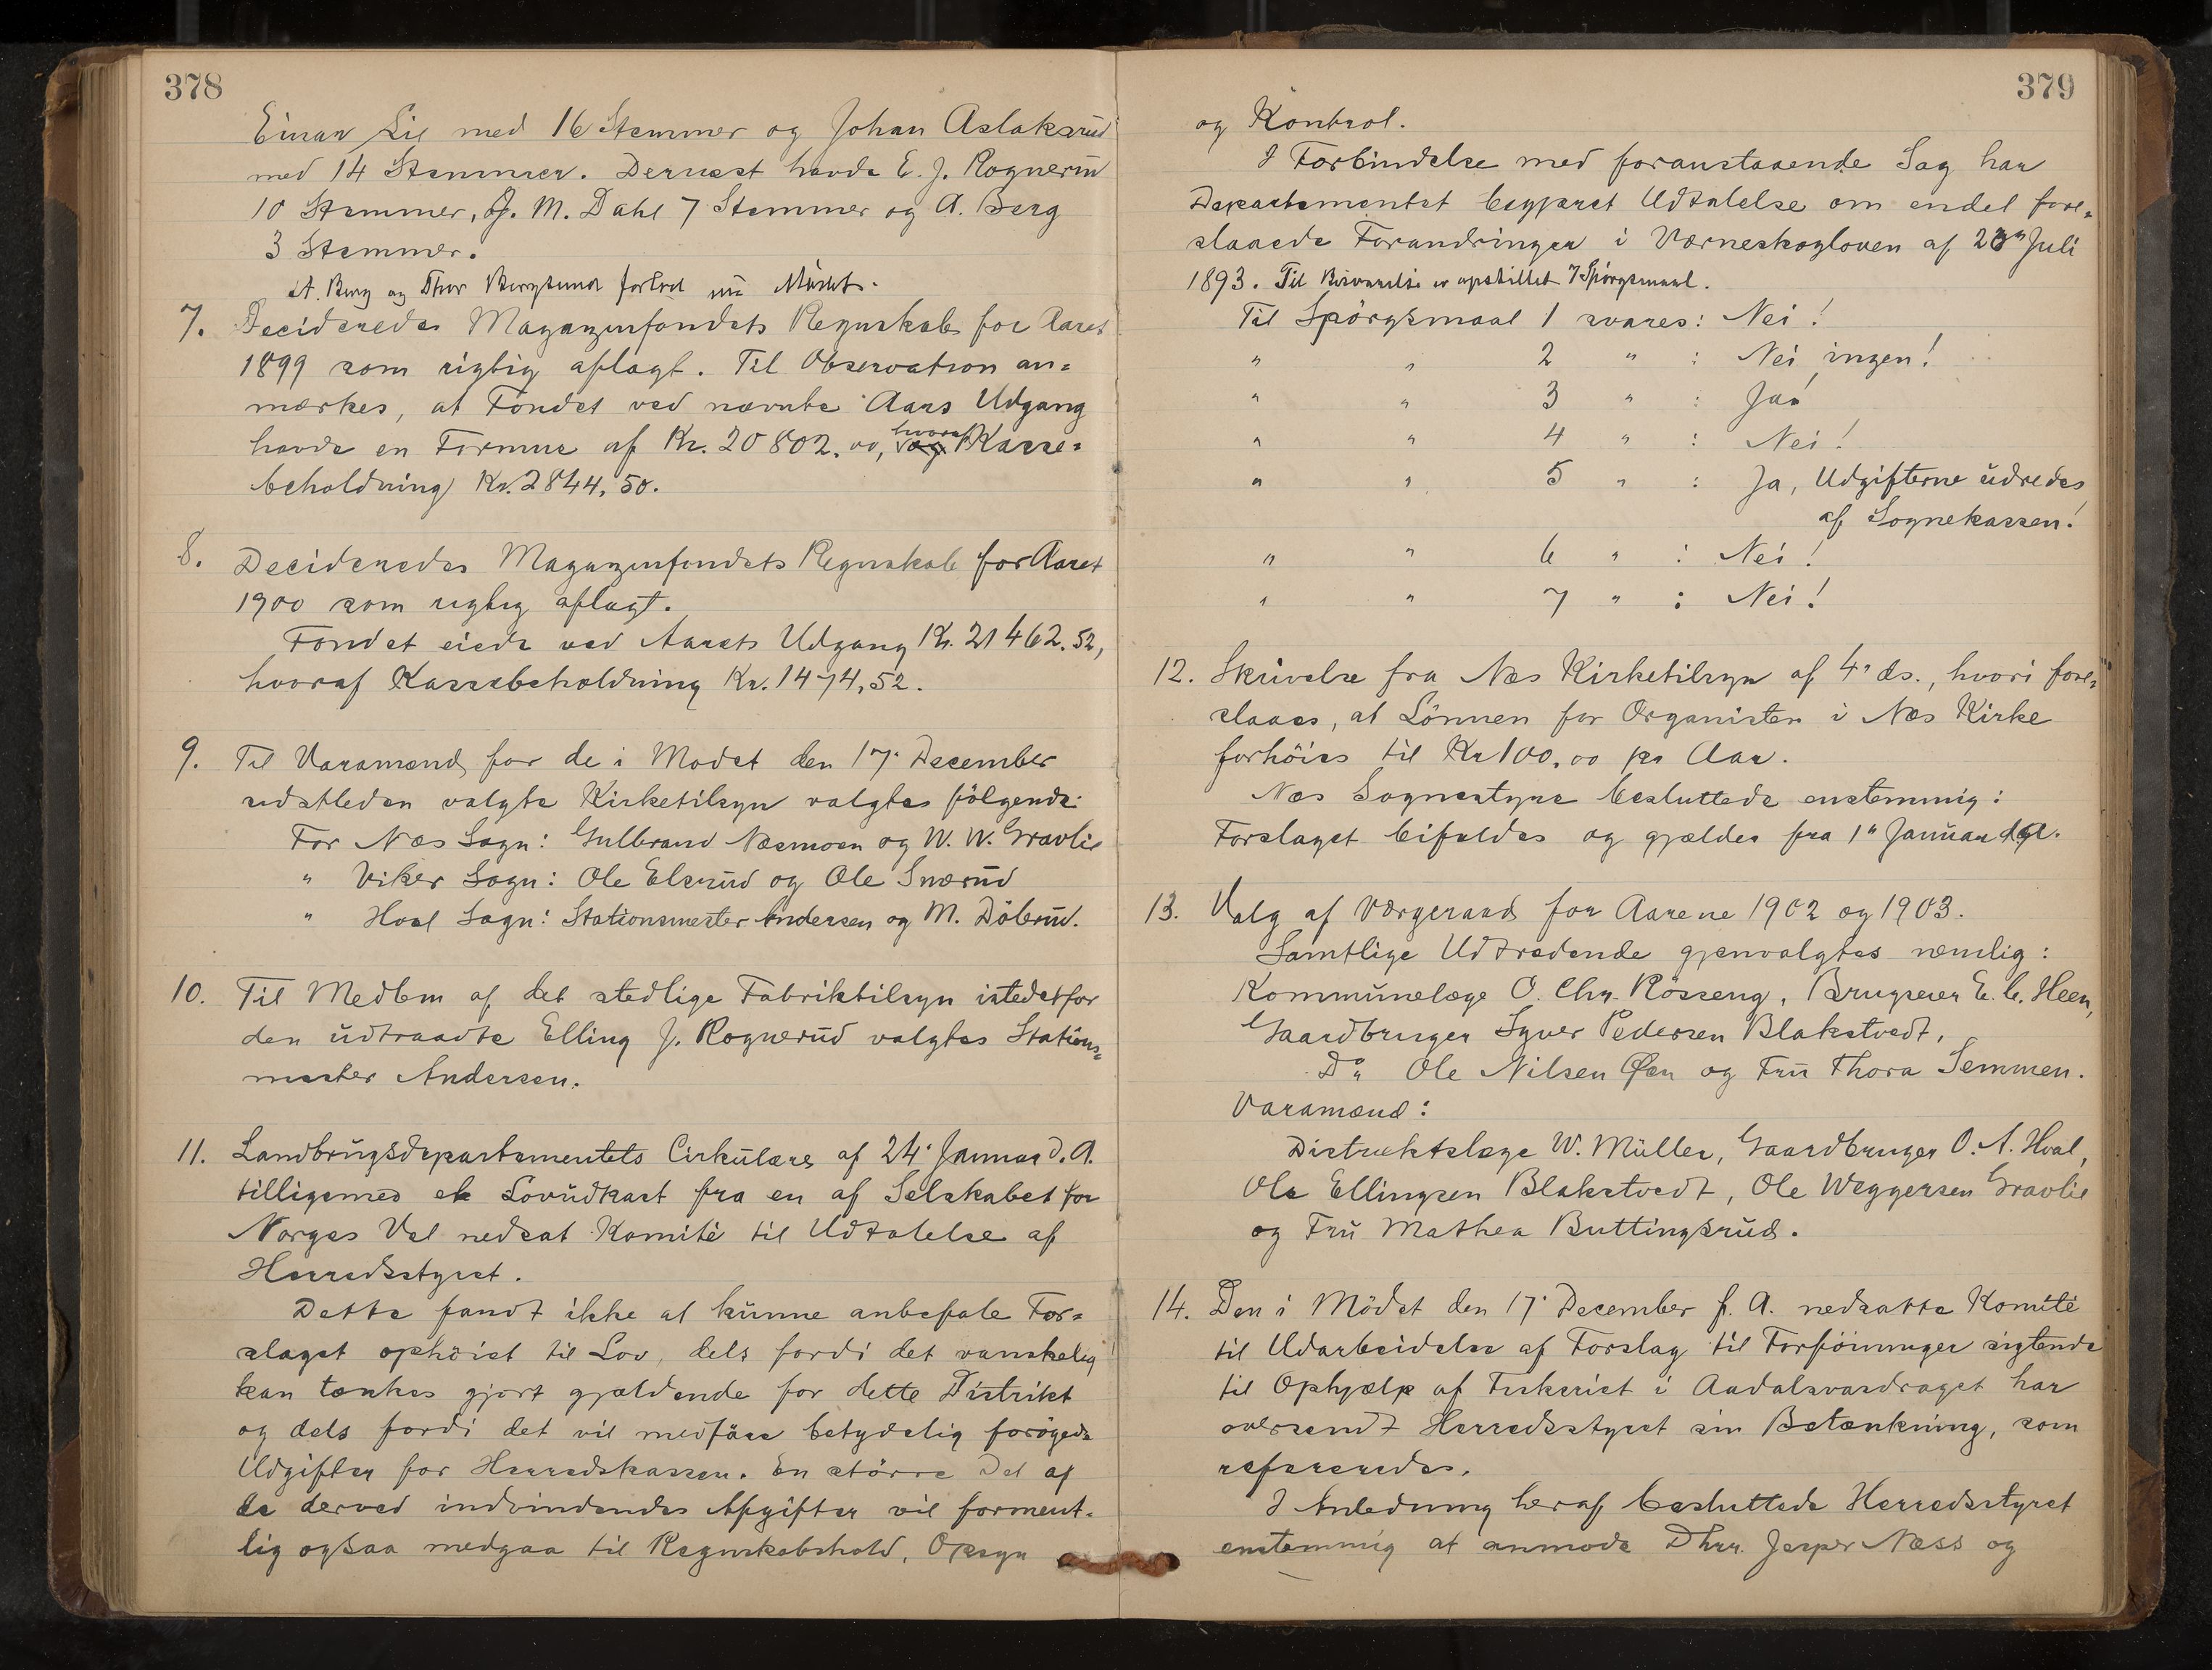 378
Einar Lie med 16 Stemmer og Johan Aslaksrud
med 14 Stemmer. Dernæst havde E. J. Rognerud
10 Stemmer, G. M. Dahl 7 Stemmer og A. Berg
3 Stemmer.
A. Berg og Thor Bergsund forlod nu Mødet.
7. Decideredes Magazinfondets Regnskab for Aaret
1899 som rigtig aflagt. Til Observation an=
mærkes, at Fondet ved nævnte Aars Udgang
havde en Formue af Kr. 20802.00, hvoraf Kasse=
beholdning Kr. 2844,50.
8. Decideredes Magazinfondets Regnskab for Aaret
1900 som rigtig aflagt.
Fondet eiede ved Aarets Udgang Kr. 21462.52,
hvoraf Kassebeholdning Kr. 1474,52.
9. Til Varamænd for de i Mødet den 17. December
sidstleden valgte Kirketilsyn valgtes følgende:
For Næs Sogn: Gulbrand Næsmoen og W. W. Gravlie
" Viker Sogn: Ole Elsrud og Ole Snærud
" Hval Sogn: Stationsmester Andersen og M. Döbrud.
10. Til Medlem af det stedlige Fabriktilsyn istedetfor
den udtraadte Elling J. Rognerud valgtes Stations=
mester Andersen.
11. Landbrugsdepartementets Cirkulære af 24. Januar d. A.
tilligemed et Lovudkast fra en af Selskabet for
Norges Vel nedsat Komité til Udtalelse af
Herredsstyret.
Dette fandt ikke at kunne anbefale For=
slaget ophöiet til Lov, dels fordi det vanskelig
kan tænkes gjort gjældende for dette Distrikt
og dels fordi det vil medføre betydelig forøgede
Udgifter for Herredskassen. En større Del af
de derved indvindendes Afgifter vil forment-
lig ogsaa medgaa til Regnskabshold, Opsyn
379
og Kontrol.
I Forbindelse med foranstaaende Sag har
Departementet begjæret Udtalelse om endel fore=
slaaede Forandringer i Værneskogloven af 20" Juli
1893. Til Besvarelse er opstillet 7 Spörgsmaal.
Til Spörgsmaal 1 svares: Nei!
" " 2 " : Nei ingen!
" " 3 " : Ja!
" " 4 " : Nei!
" " 5 " : Ja, Udgifterne udredes
af Sognekassen!
" " 6 " : Nei!
" " 7 " : Nei!
12. Skrivelse fra Næs Kirketilsyn af 4" ds., hvori fore=
slaaes, at Lönnen for Organisten i Næs Kirke
forhöies til Kr 100,00 pr Aar.
Næs Sognestyre besluttede enstemmig:
Forslaget bifaldes og gjælder fra 1" Januar d. A.
13. Valg af Værgeraad for Aarene 1902 og 1903.
Samtlige Udtrædende gjenvalgtes nemlig:
Kommunelæge O. Chr. Rösseng, Brugseier E. C. Heen,
Gaardbruger Syver Pedersen Blakstvedt,
Do. Ole Nilsen Øen og Fru Thora Semmen.
Varamænd:
Distriktslæge W. Müller, Gaardbruger O. A. Hval,
Ole Ellingsen Blakstvedt, Ole Weggersen Gravlie
og Fru Mathea Buttingsrud.
14. Den i Mödet den 17. December f. A. nedsatte Komité
til Udarbeidelse af Forslag til Forföininger sigtende
til Ophjælp af Fiskeriet i Aadalsvasdraget har
oversendt Herredsstyret sin Betænkning, som
refereredes.
I Anledning heraf besluttede Herredsstyret
enstemmig at anmode Dhrr. Jesper Næss og